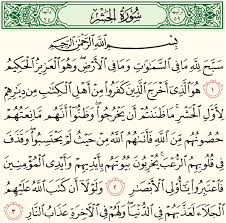 سُورَةُ الحَشْرِ
بِسْمِ ٱللَّهِ ٱلرَّحْمَٰنِ ٱلرَّحِيمِ
سَبَّحَ لِلَّهِ مَا فِي ٱلسَّمَٰوَٰتِ وَمَا فِي ٱلْأَرْضِ وَهُوَ ٱلْعَزِيزُ ٱلْحَكِيمُ
١ هُوَ ٱلَّذِيٓ أَخْرَجَ ٱلَّذِينَ كَفَرُوا۟ مِنْ أَهْلِ ٱلْكِتَٰبِ مِن دِيَٰرِهِمْ
لِأَوَّلِ ٱلْحَشْرِ مَا ظَنَنتُمْ أَن يَخْرُجُوا۟ وَظَنُّوٓا۟ أَنَّهُم مَّانِعَتُهُمْ
حُصُونُهُم مِّنَ ٱللَّهِ فَأَتَىٰهُمُ ٱللَّهُ مِنْ حَيْثُ لَمْ يَحْتَسِبُوا۟ وَقَذَفَ
فِي قُلُوبِهِمُ ٱلرُّعْبَ يُخْرِبُونَ بُيُوتَهُم بِأَيْدِيهِمْ وَأَيْدِي ٱلْمُؤْمِنِينَ
فَٱعْتَبِرُوا۟ يَٰٓأُو۟لِي ٱلْأَبْصَٰرِ ٢ وَلَوْلَآ أَن كَتَبَ ٱللَّهُ عَلَيْهِمُ
ٱلْجَلَآءَ لَعَذَّبَهُمْ فِي ٱلدُّنْيَا وَلَهُمْ فِي ٱلْءَاخِرَةِ عَذَابُ ٱلنَّارِ ٣